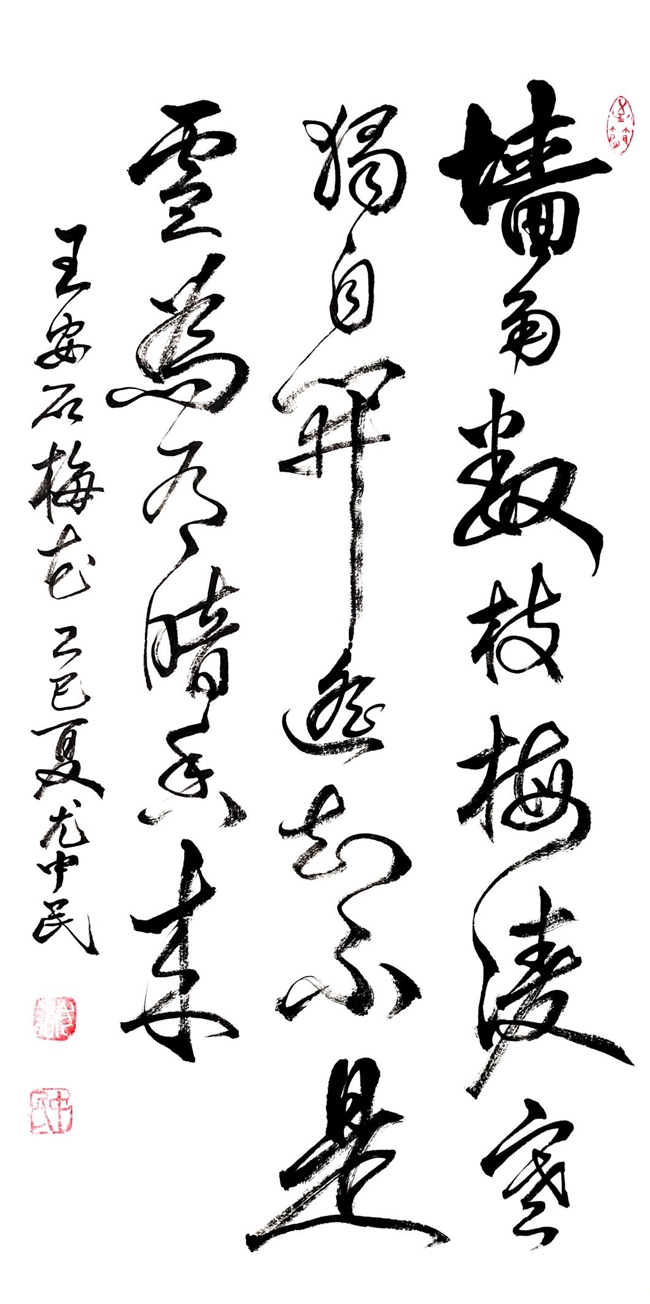 墙角数枝梅凌寒
独自開遥知不是
雪為有暗香来
王安石梅花乙巳夏尤中民